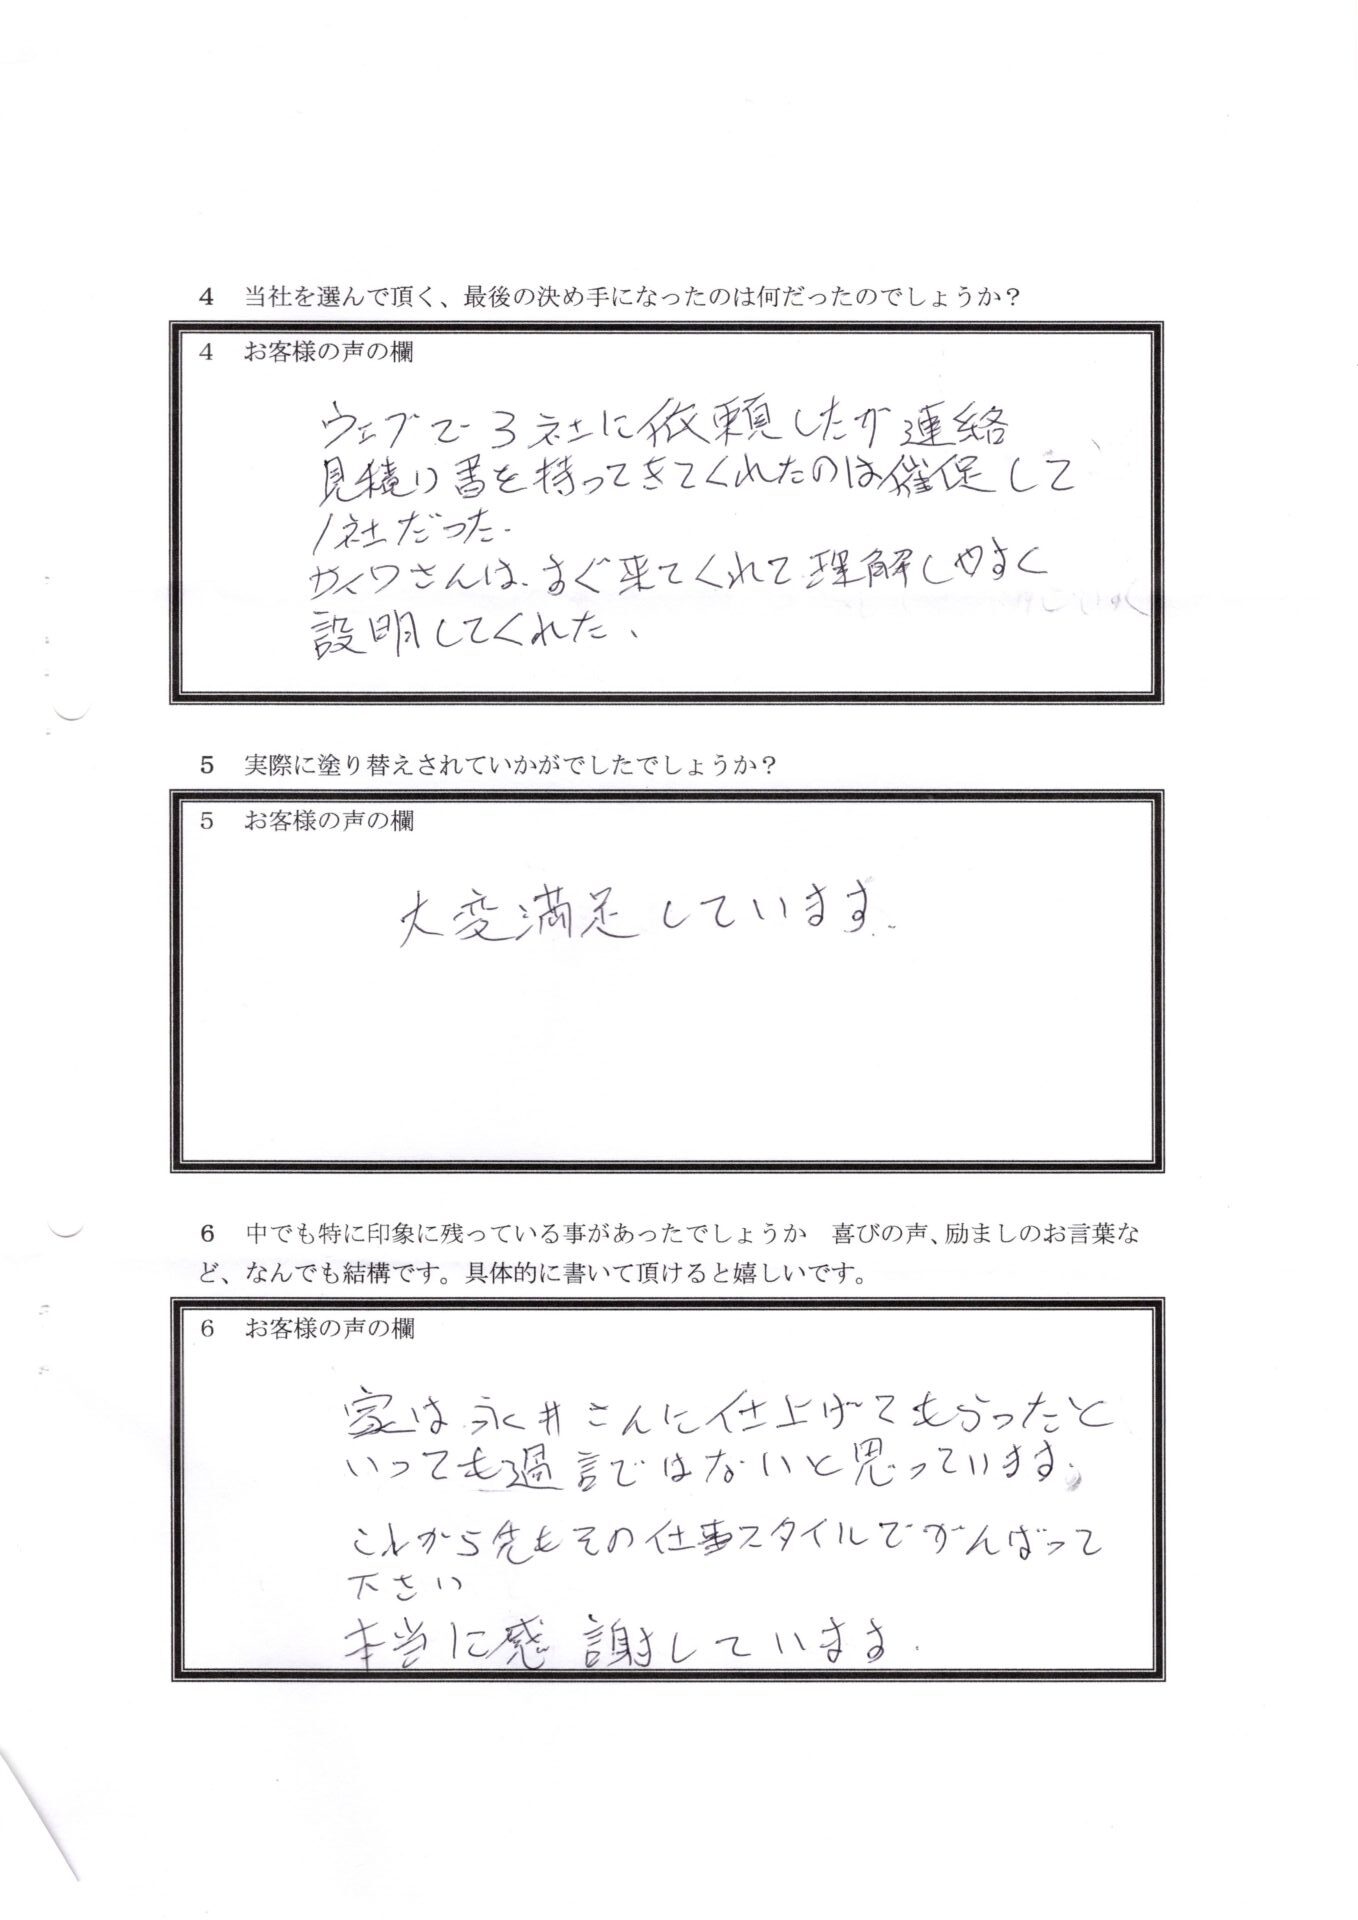 4 当社を選んで頂く、最後の決め手になったのは何だったのでしょうか？
4 お客様の声の欄
ウェブで3社に依頼したが連絡
見積り書を持ってきてくれたのは催促して
1社だった.
さんは、すぐ来てくれて理解しやすく
説明してくれた、
5 実際に塗り替えされていかがでしたでしょうか？
5 お客様の声の欄
大変満足しています.
6 中でも特に印象に残っている事があったでしょうか 喜びの声、励ましのお言葉な
ど、なんでも結構です。具体的に書いて頂けると嬉しいです。
6 お客様の声の欄
家は永井さんに仕上げてもらったと
いっても過言ではないと思っています.
これから先もその仕事スタイルでがんばって
下さい
本当に感謝しています.